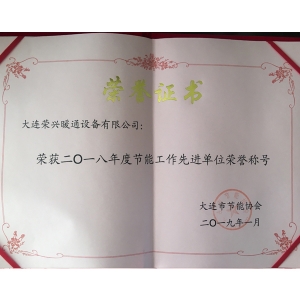 荣誉证书
大连荣兴暖通设备有限公司：
荣获二〇一八年度节能工作先进单位荣誉称号
大连市节能协会
二〇一九年一月